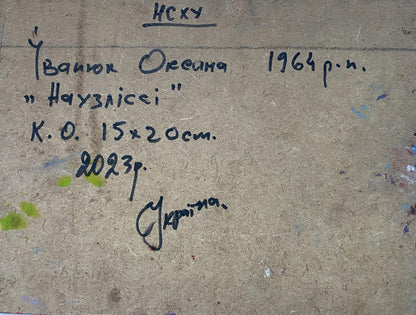 НСХУ
Іванюк Оксана 1964 р.н.
„Наузліссі"
К. О. 15х20см.
2023р.
Україна.